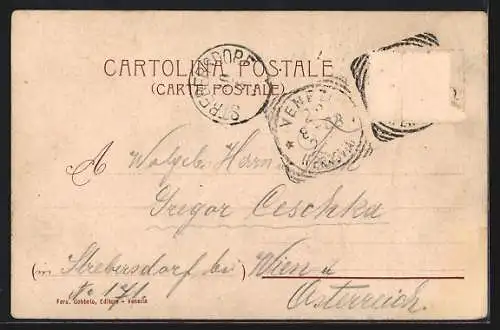 STREBERSDORF
CARTOLINA POSTALE
(CARTE POSTALE)
VENEZIA
(FERROVIA)
A Wolgeb. Herrn
Gregor Ceschka
(in Strebersdorf bei) Wien
No 171
Österreich.
Ferd. Gobbato, Editore - Venezia